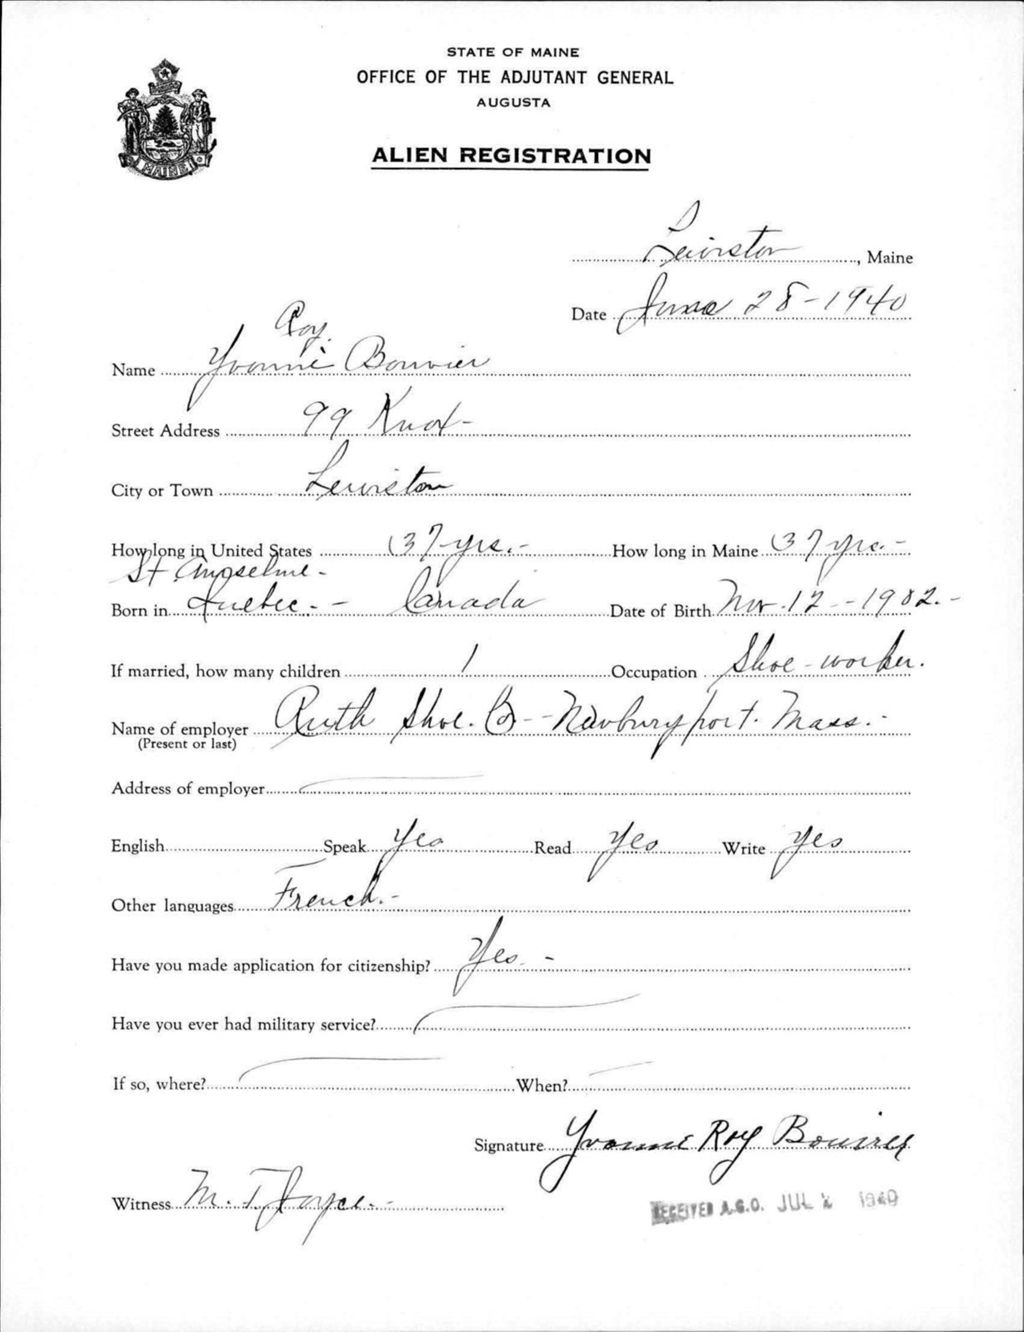 STATE OF MAINE
OFFICE OF THE ADJUTANT GENERAL
AUGUSTA
ALIEN REGISTRATION
MAINE
Lewiston, Maine
Date June 28-1940
Roy
Name Yvonne Bouvier
Street Address 99 Knox-
City or Town Lewiston
How long in United States 37 yrs.- How long in Maine 37 yrs.-
St Anselme-
Born in Quebec.- Canada Date of Birth Nov-12-1902.-
If married, how many children 1 Occupation Shoe-worker.
Name of employer Ruth Shoe. Co--Newburyport. Mass.-
(Present or last)
Address of employer
English Speak Yes Read Yes Write Yes
Other languages French.-
Have you made application for citizenship? Yes -
Have you ever had military service?
If so, where? When?
Signature Yvonne Roy Bouvier
Witness M. T. Joyce.-
RECEIVED A.G.O. JUL 2 1940